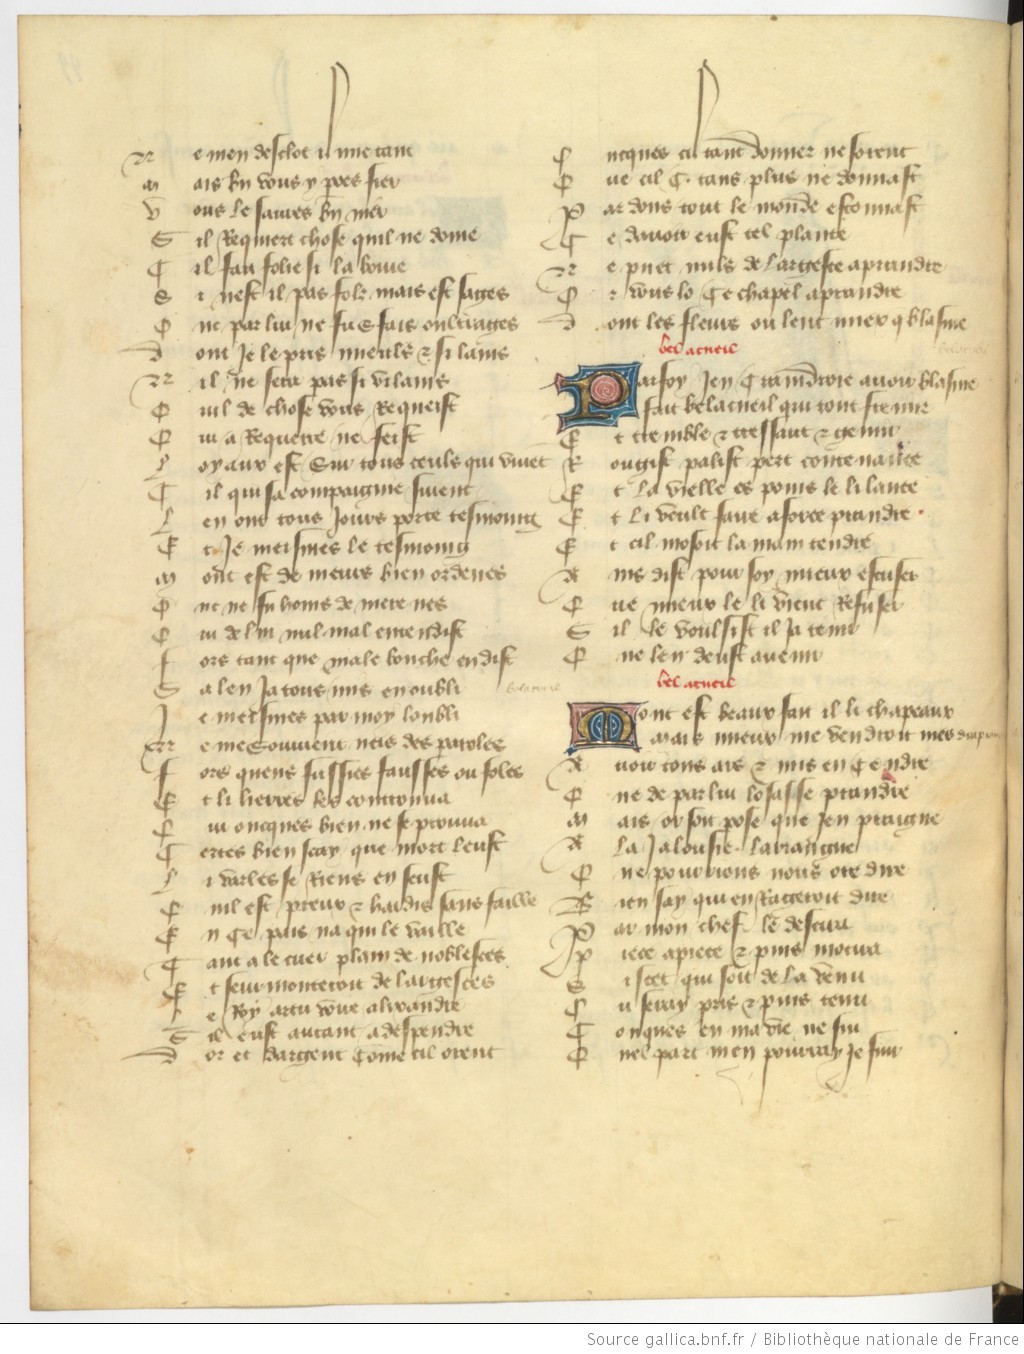 N e men desclot il une tant
M ais bn vous y poes fier
V ous le saures bn nier
S il Requiert chose quil ne done
C il fait folie si la boute
S i nest il pas folz mais est sages
O nt par lui ne fu Sfais oultrages
D ont Je le pris mieulx & si lains
N il ne sera pas si vilains
Q uil de chose vous Requeist
Q ui a Requerre ne feist
L oyaux est Sur tous ceulx qui vivent
C il qui sa compaignie sivent
L en ont tous Jours porte tesmoing
E t Je meismes le tesmoing
M oult est de meurs bien ordenes
O nc ne fu homs de mere nes
Q ui de lui nul mal entendist
F ors tant que male bouche en dist
S a len Ja tout mis en oubli
J e meismes par moy loubli
N e me Souvient neis des paroles
F ors quens fussies fausses ou foles
E t li lierres les controuva
Q ui oncques bien ne se prouva
C ertes bien scay que mort leust
L i varles se Riens en seust
Q uil est preux & hardis sans faille
E n Ce pais na qui le vaille
T ant a le cuer plain de noblesces
E t seurmonteroit de largesces
L e Roy artu voire alixandre
S il eust autant a despendre
D or et dargent Come cil orent
O ncques cil tant donner ne sorent
Q ue cil C. tans plus ne donnast
P ar dons tout le monde estonnast
C e davoir eust tel plante
N e puet nuls de largesce aprandre
O r vous lo Ce chapel a prandre
D ont les fleurs oulent miex q basme
bel acueil
Par foy Jen Craindroie avoir blasme
fait bel acueil qui tout fremir
E t tremble & tressaut & gemir
R ougist palist pert contenance
E t la vielle es poins le li lance
E t li veult faire a force prandre
E t cil nosoit la main tendre
A ins dist pour soy mieux escuser
Q ue mieux le li vient Refuser
S il le voulsist il Ja tenir
Q ue len deust avenir
bel acueil
Mont est beaux fait il li chapeaux
Mais mieux me vendroit mes drapeaux
A voir tous ars & mis en Cendre
Q ne de par lui losasse prandre
M ais or soit pose que Jen praigne
A la Jalousie la
Q ne pourrions nous ore dire
B ien say quien Rageroit dire
P ar mon chef le descira
P iece a piece & puis
S i scet qui soit de la venu
O u seray pris & puis tenu
C onques en ma vie ne fui
Q uel part men pourray Je fuir